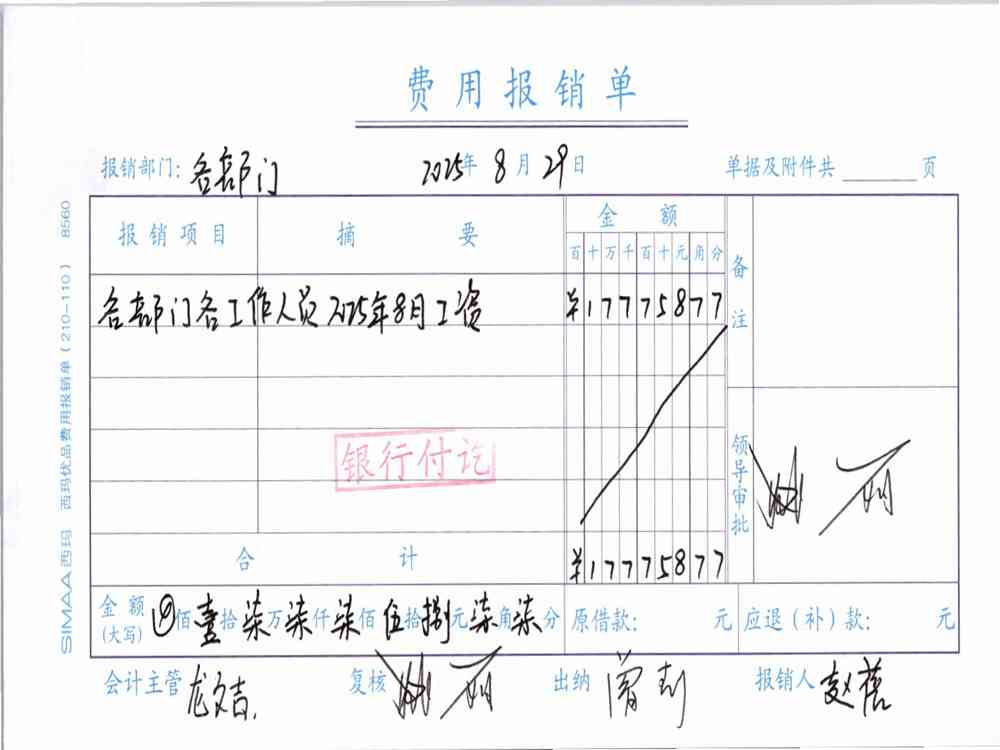 费用报销单
报销部门: 各部门 2025年 8月 29日 单据及附件共 页
报销项目 摘要 金额 备注
百十万千百十元角分
各部门各工作人员2025年8月工资 ¥17775877
银行付讫
领导审批
合计 ¥17775877
金额(大写) 佰壹拾柒万柒仟柒佰伍拾捌元柒角柒分 原借款: 元 应退(补)款: 元
会计主管 龙文吉 复核 出纳 报销人 赵蓓
SIMAA西玛 西玛优品费用报销单(210-110) 8560